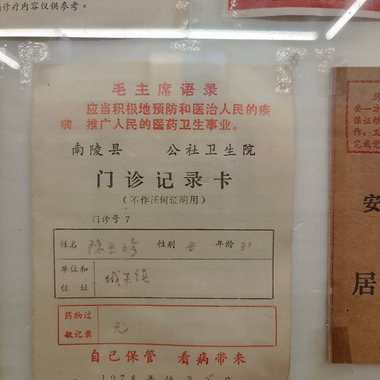 诊疗内容仅供参考。
毛主席语录
应当积极地预防和医治人民的疾
病，推广人民的医药卫生事业。
南陵县 公社卫生院
门诊记录卡
（不作任何证明用）
门诊号 7
姓名 陈 性别 女 年龄 31
单位和
住址 城关镇
药物过
敏记录 无
自己保管 看病带来
安
居